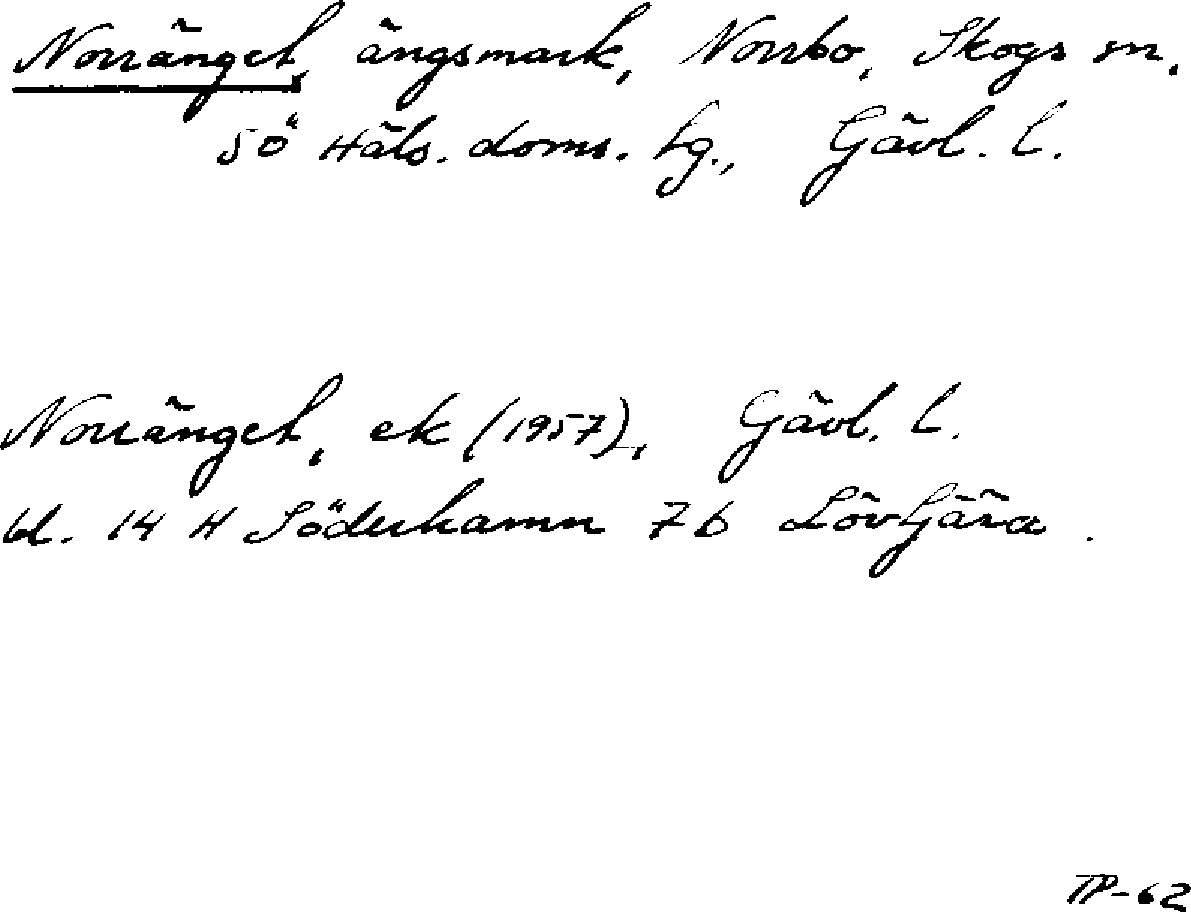 Norränget, ängsmark, Norrbo, Skogs sn,
SÖ Häls. doms. hg., Gävl. l.
Norränget, ek (1957), Gävl. l.
bl. 14 H Söderhamn 7b Lövtjära.
TP-62